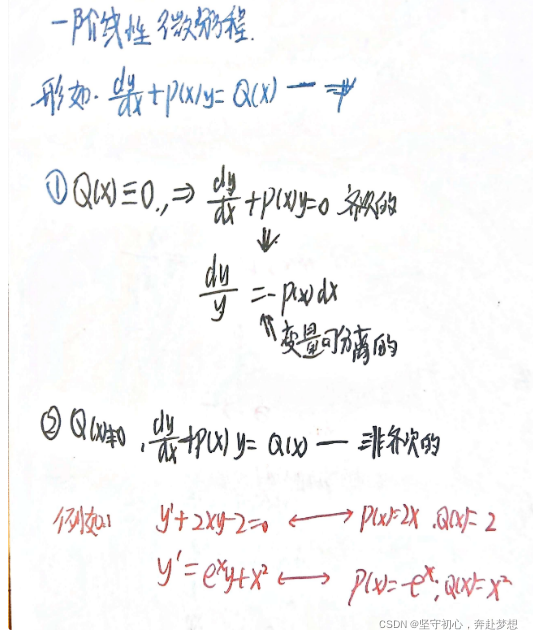 一阶线性微分方程.
形如. dy/dx + P(x)y = Q(x) —
① Q(x)≡0, ⇒ dy/dx + P(x)y=0 齐次的
↓
dy/y = -P(x)dx
⇑ 变量可分离的
② Q(x)≢0, dy/dx + P(x)y = Q(x) — 非齐次的
例如: y'+2xy-2=0 ⟷ P(x)=2x. Q(x)=2
y'=e^x y+x² ⟷ P(x)=-e^x; Q(x)=x²
CSDN @坚守初心,奔赴梦想